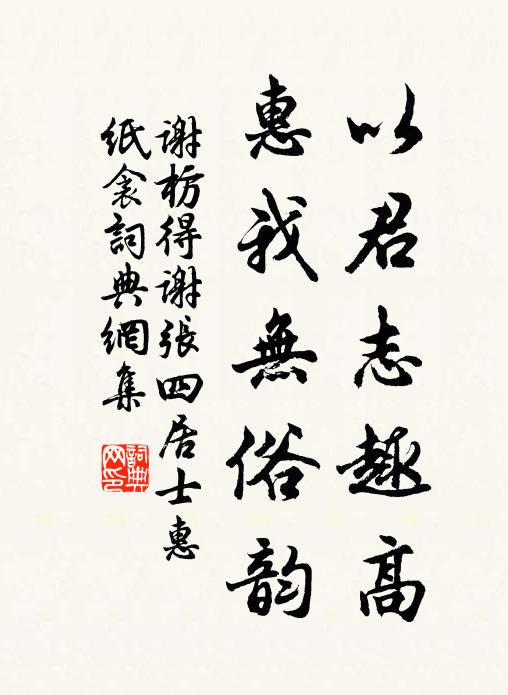 以君志趣高
惠我無俗韵
谢枋得谢張四居士惠
纸衾詞典網集
詞典网印